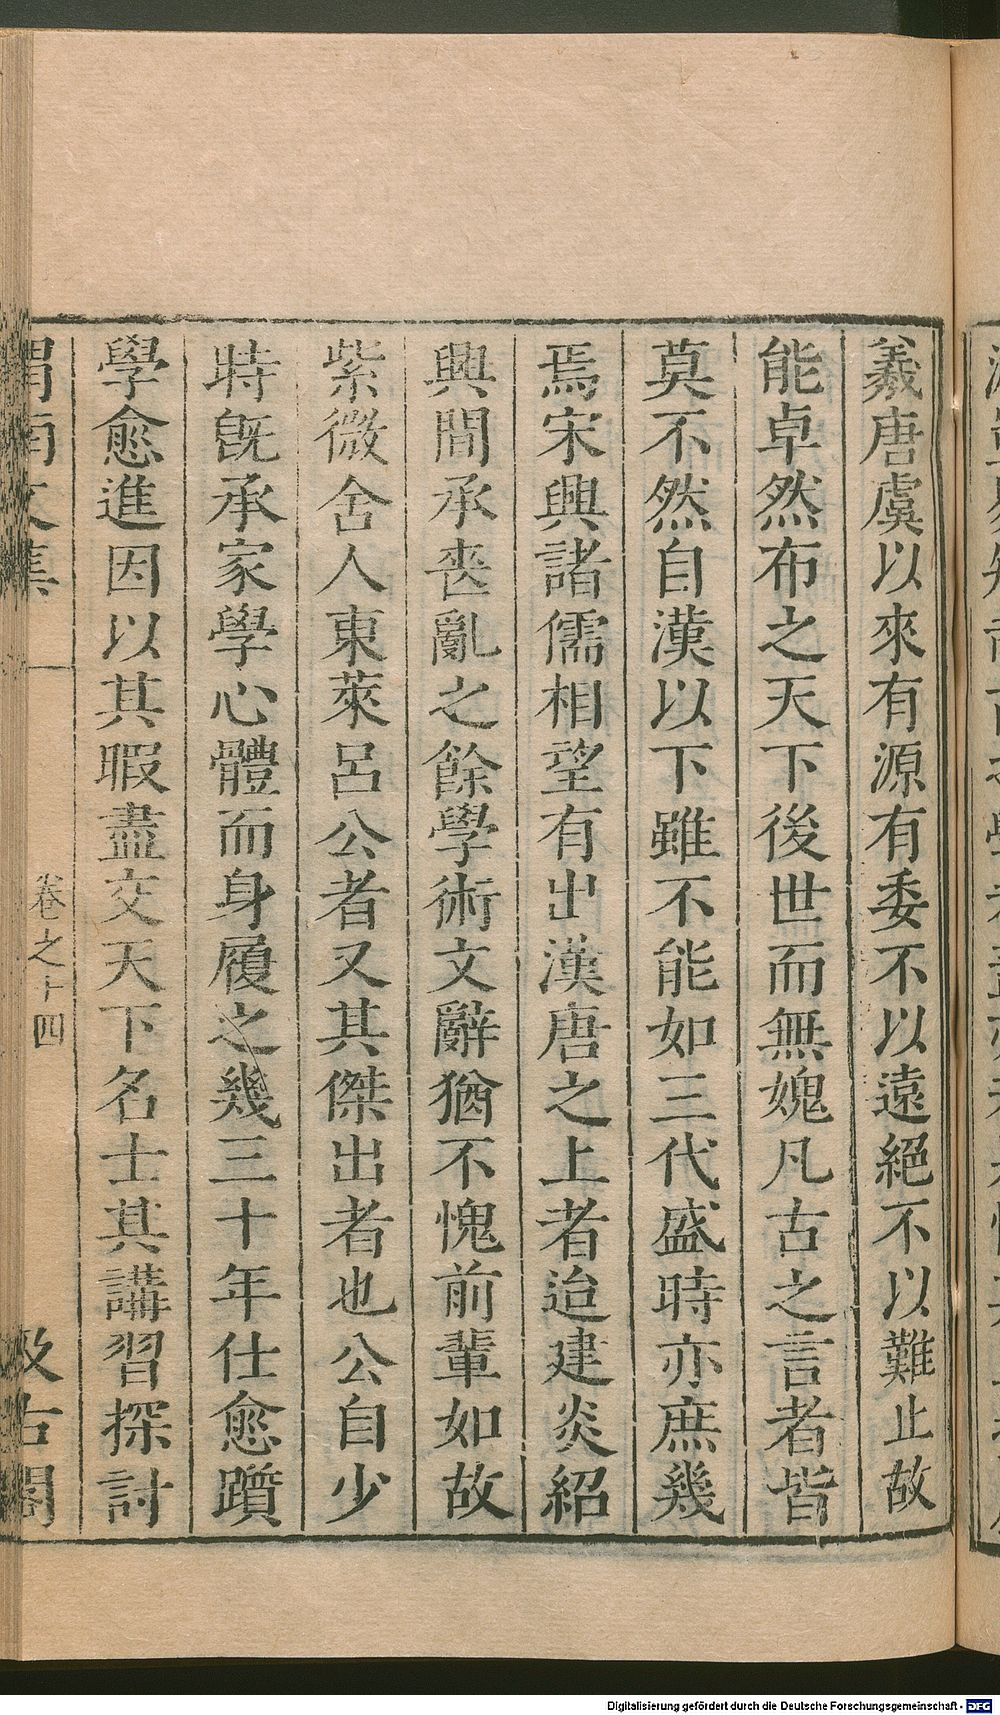 羲唐虞以來有源有委不以遠絕不以難止故
能卓然布之天下後世而無媿凡古之言者皆
莫不然自漢以下雖不能如三代盛時亦庶幾
焉宋興諸儒相望有出漢唐之上者迨建炎紹
興間承喪亂之餘學術文辭猶不愧前輩如故
紫微舍人東萊呂公者又其傑出者也公自少
時旣承家學心體而身履之幾三十年仕愈躓
學愈進因以其暇盡交天下名士其講習探討
渭南文集
卷之十四
汲古閣
Digitalisierung gefördert durch die Deutsche Forschungsgemeinschaft - DFG